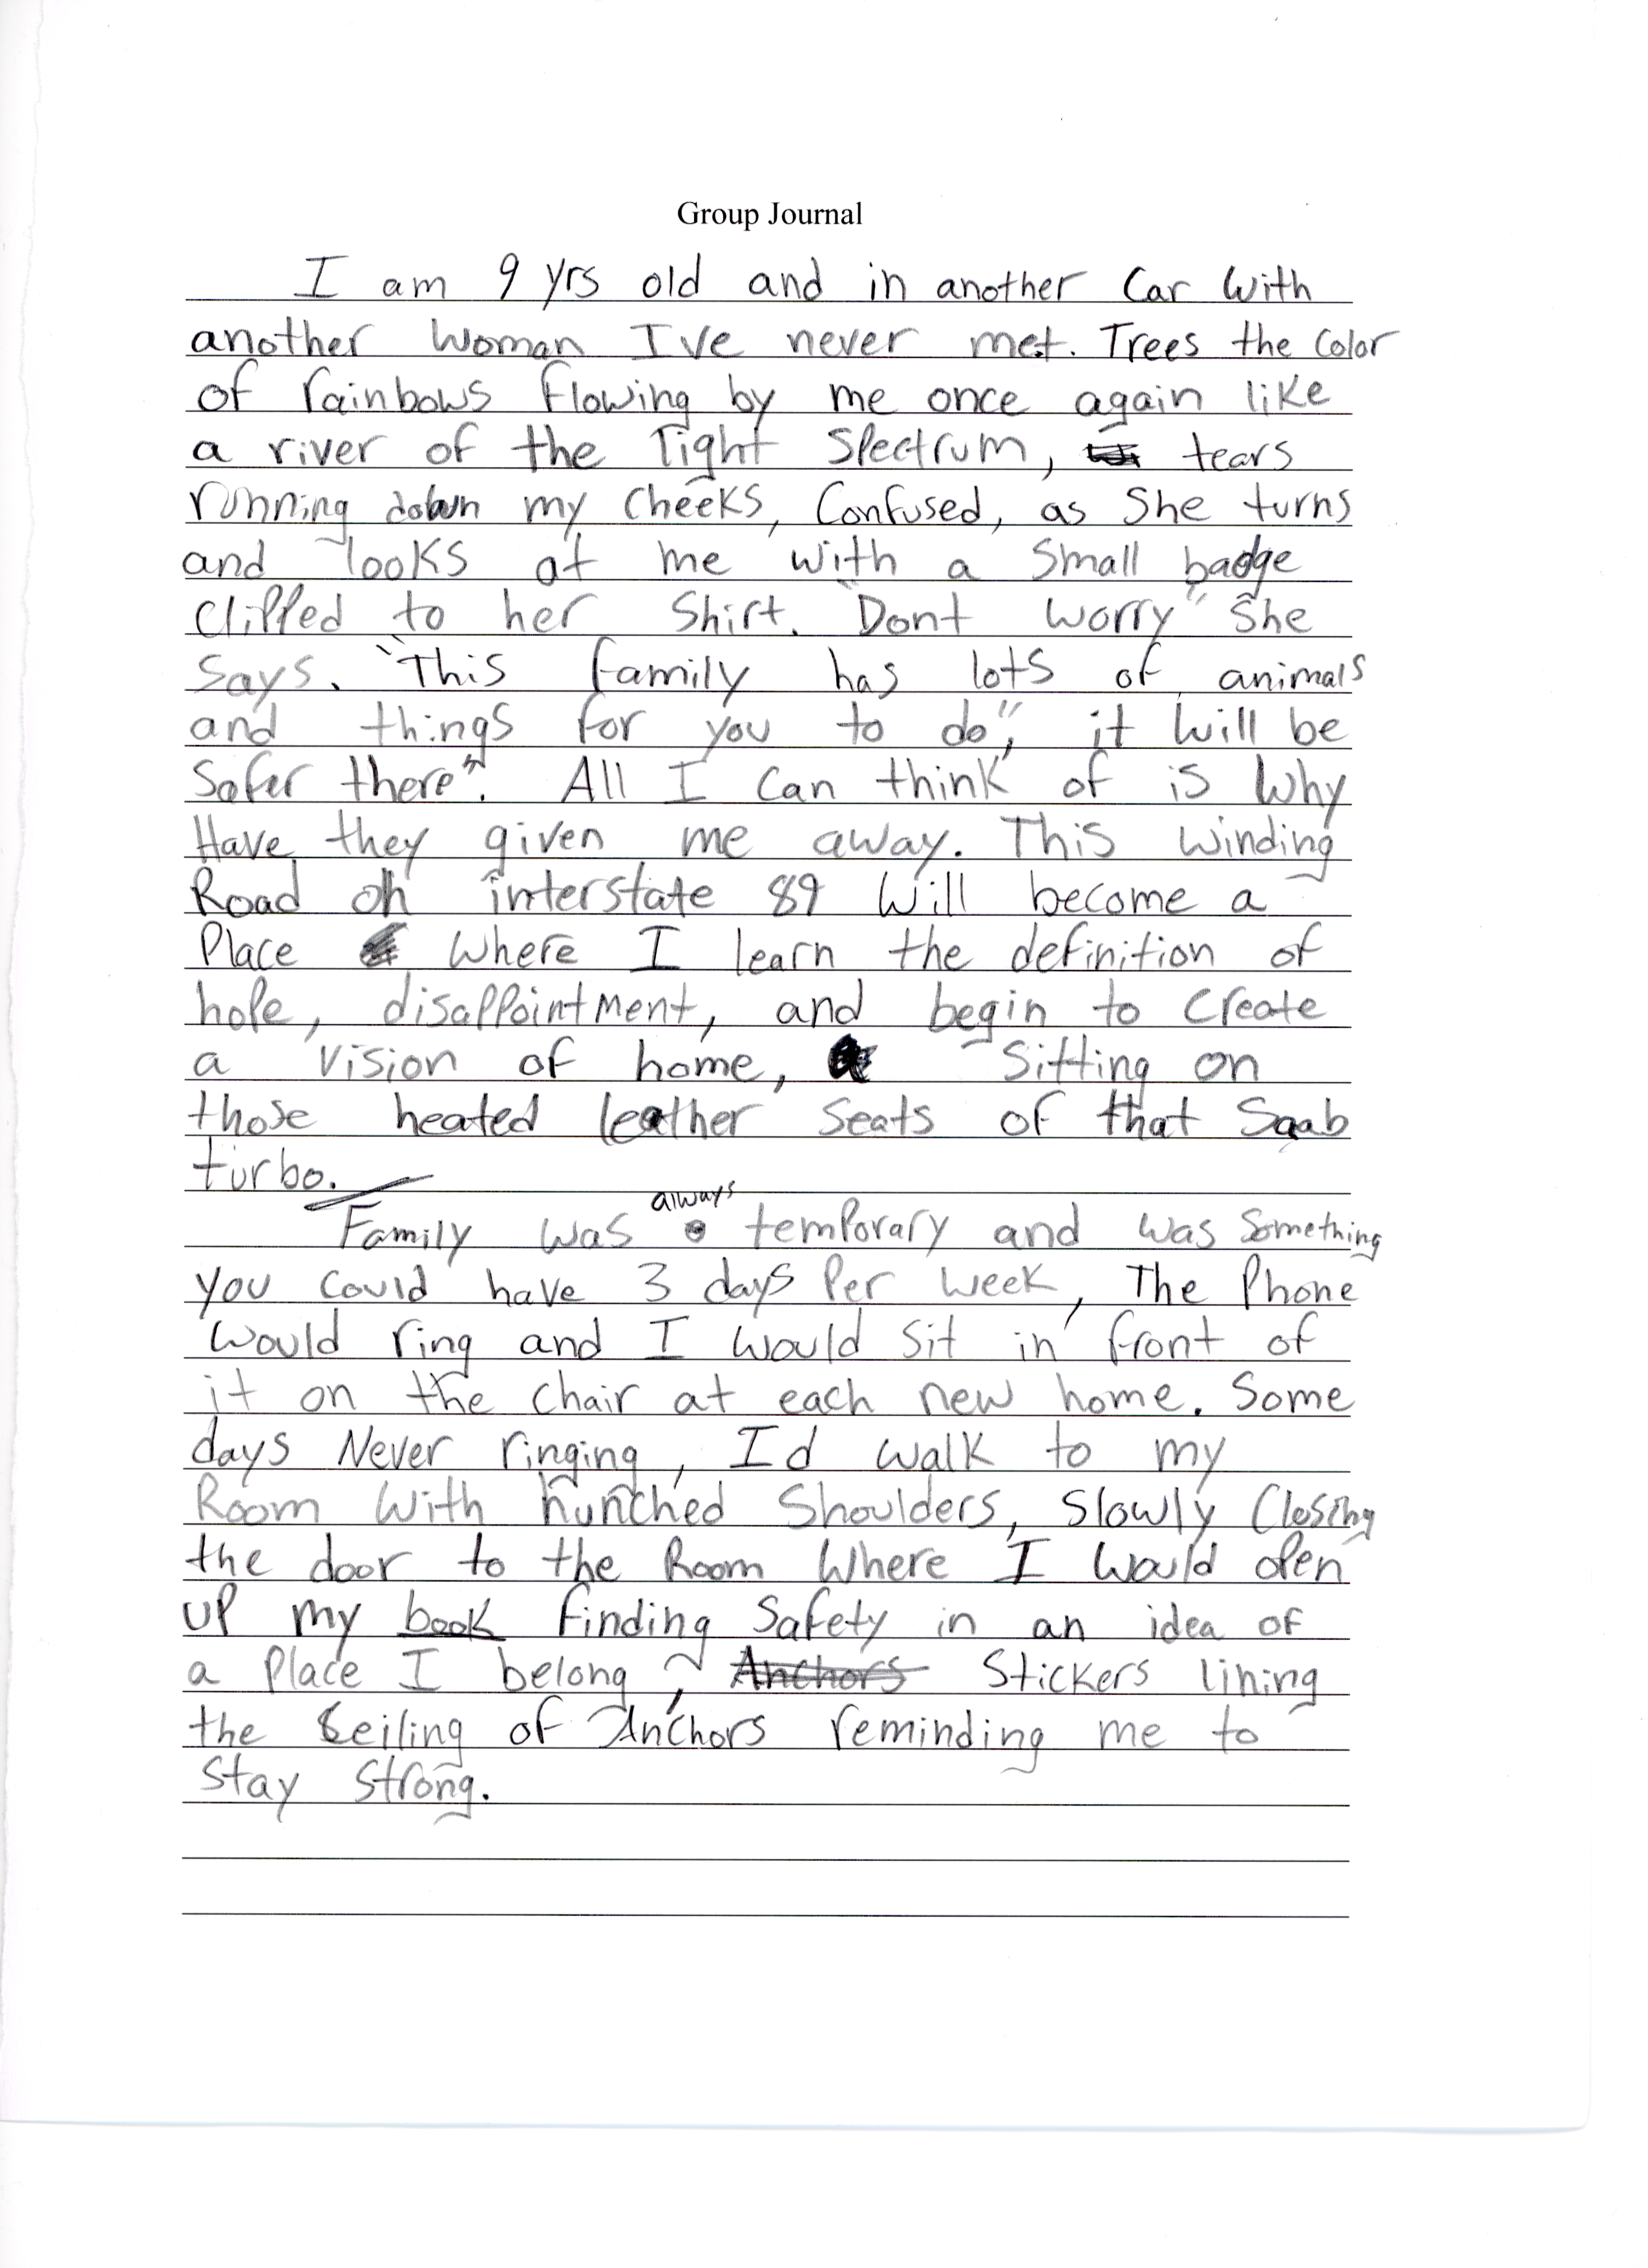 Group Journal
I am 9 yrs old and in another Car With
another Woman I've never met. Trees the Color
of rainbows flowing by me once again like
a river of the light Spectrum, tears
running down my Cheeks, Confused, as She turns
and looks at me with a Small badge
Clipped to her Shirt. "Dont worry" She
Says. "This family has lots of animals
and things for you to do", it Will be
Safer there". All I Can think of is Why
Have they given me away. This Winding
Road on interstate 89 Will become a
Place Where I learn the definition of
hope, disappointment, and begin to Create
a Vision of home, Sitting on
those heated leather Seats of that Saab
turbo.
Family was always temporary and was Something
you Could have 3 days Per Week, The Phone
Would ring and I Would Sit in front of
it on the Chair at each new home. Some
days Never ringing, I'd walk to my
Room With hunched Shoulders, Slowly Closing
the door to the Room Where I Would open
up my book finding Safety in an idea of
a Place I belong, Anchors Stickers lining
the Ceiling of Anchors reminding me to
Stay Strong.